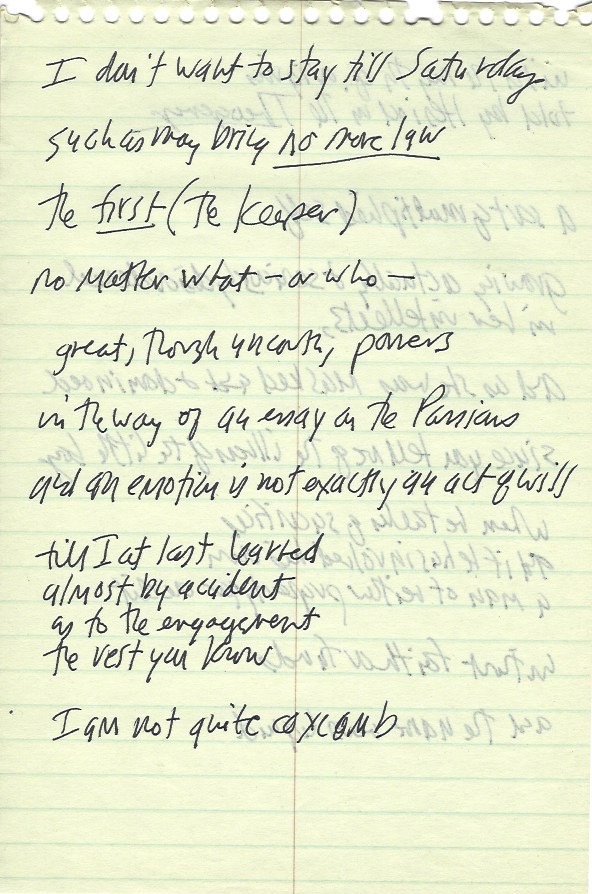 I don't want to stay till Saturday
such as may bring no more law
the first (the keeper)
no matter what – or who –
great, though uncouth, powers
in the way of an essay on the Passions
and an emotion is not exactly an act of will
till I at last learned
almost by accident
as to the engagement
the rest you know
I am not quite coxcomb